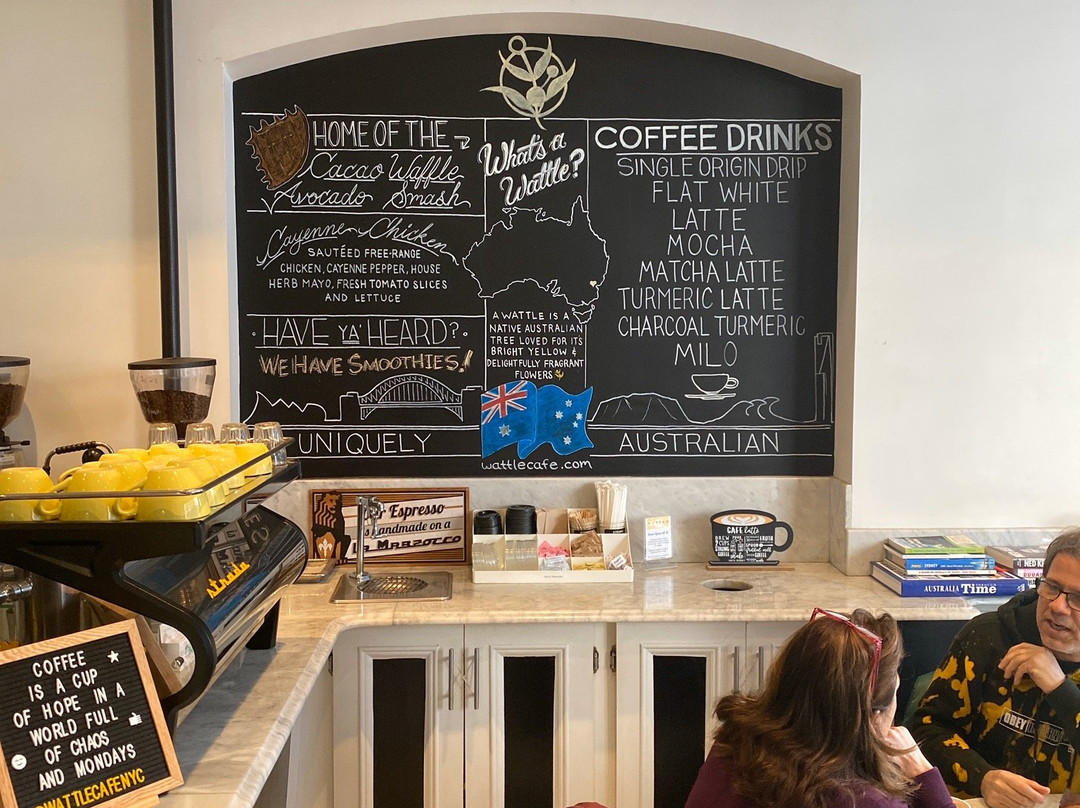 HOME OF THE
Cacao Waffle
Avocado Smash
Cayenne Chicken
SAUTÉED FREE-RANGE
CHICKEN, CAYENNE PEPPER, HOUSE
HERB MAYO, FRESH TOMATO SLICES
AND LETTUCE
HAVE YA' HEARD?
WE HAVE SMOOTHIES!
UNIQUELY
What's a
Wattle?
A WATTLE IS A
NATIVE AUSTRALIAN
TREE LOVED FOR ITS
BRIGHT YELLOW &
DELIGHTFULLY FRAGRANT
FLOWERS
wattlecafe.com
COFFEE DRINKS
SINGLE ORIGIN DRIP
FLAT WHITE
LATTE
MOCHA
MATCHA LATTE
TURMERIC LATTE
CHARCOAL TURMERIC
MILO
AUSTRALIAN
Espresso
handmade on a
La Marzocco
CAFE latte
AUSTRALIA Time
SYDNEY
NED K
OBEY
COFFEE
IS A CUP
OF HOPE IN A
WORLD FULL
OF CHAOS
AND MONDAYS
@WATTLECAFENYC